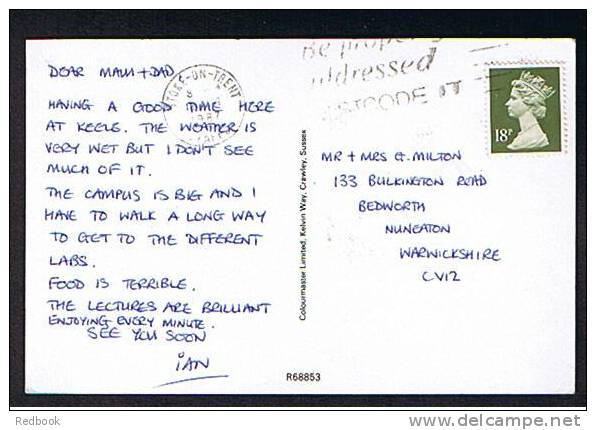 DEAR MAM + DAD
HAVING A GOOD TIME HERE
AT KEELE. THE WEATHER IS
VERY WET BUT I DON'T SEE
MUCH OF IT.
THE CAMPUS IS BIG AND I
HAVE TO WALK A LONG WAY
TO GET TO THE DIFFERENT
LABS.
FOOD IS TERRIBLE.
THE LECTURES ARE BRILLIANT
ENJOYING EVERY MINUTE.
SEE YOU SOON
IAN
STOKE-ON-TRENT
1987
Be properly
addressed
POSTCODE IT
18P
Colourmaster Limited, Kelvin Way, Crawley, Sussex
MR + MRS G. MILTON
133 BULKINGTON ROAD
BEDWORTH
NUNEATON
WARWICKSHIRE
CV12
R68853
Redbook
www.delcampe.net